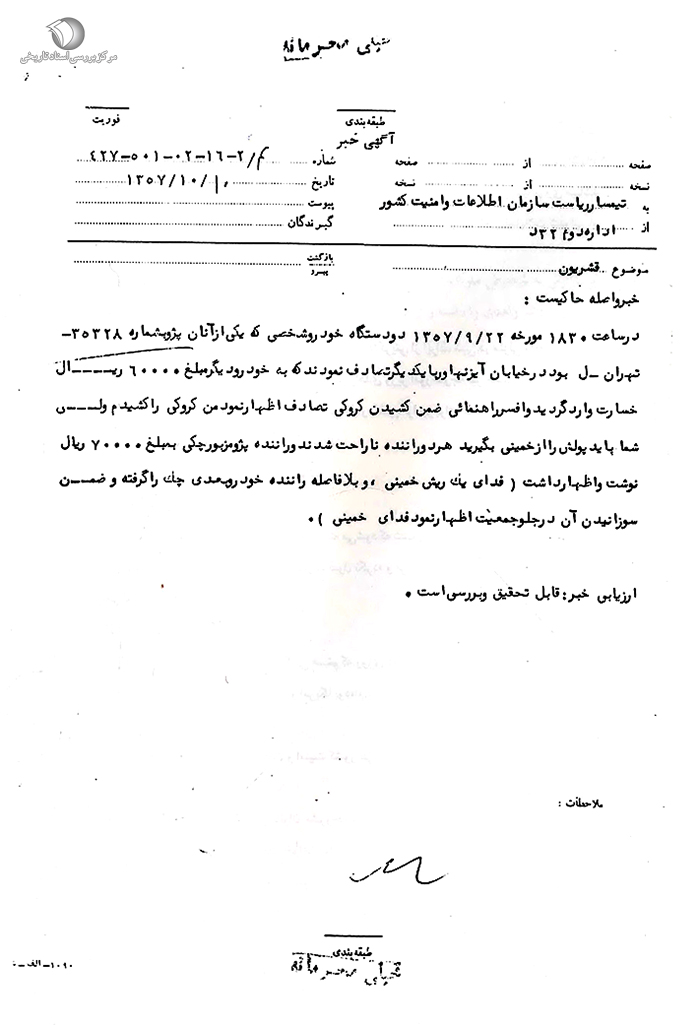 مرکز بررسی اسناد تاریخی
خیلی محرمانه
طبقه‌بندی
فوریت
آگهی خبر
صفحه از صفحه شماره ۴۲۷-۵۰۱-۰۲-۱۶-۲/م
نسخه از نسخه تاریخ ۱۳۵۷/۱۰/
به تیمسار ریاست سازمان اطلاعات و امنیت کشور پیوست
از اداره دوم گیرندگان
موضوع قشریون بازگشت
پیرو
خبر واصله حاکیست :
در ساعت ۱۸۳۰ مورخه ۱۳۵۷/۹/۲۲ دو دستگاه خودرو شخصی که یکی از آنان پژو بشماره ۳۵۳۲۸-
تهران ـ ل بود در خیابان آیزنهاور با یکدیگر تصادف نمودند که به خودرو دیگر مبلغ ۶۰۰۰۰ ریـــال
خسارت وارد گردید و افسر راهنمائی ضمن کشیدن کروکی تصادف اظهار نمود من کروکی را کشیدم ولـــی
شما باید پولش را از خمینی بگیرید هر دو راننده ناراحت شدند و راننده پژو مزبور چکی بمبلغ ۷۰۰۰۰ ریال
نوشت و اظهار داشت ( فدای یک ریش خمینی ، و بلافاصله راننده خودرو بعدی چک را گرفته و ضمــن
سوزانیدن آن در جلو جمعیت اظهار نمود فدای خمینی ) .
ارزیابی خبر : قابل تحقیق و بررسی است .
ملاحظات :
طبقه‌بندی
خیلی محرمانه
۱۰۹۰- الف